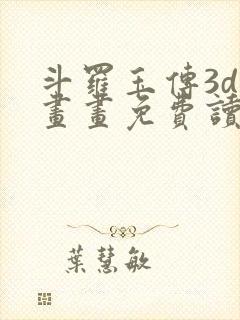 斗羅玉傳3d
畫畫免費讀
葉慧敏